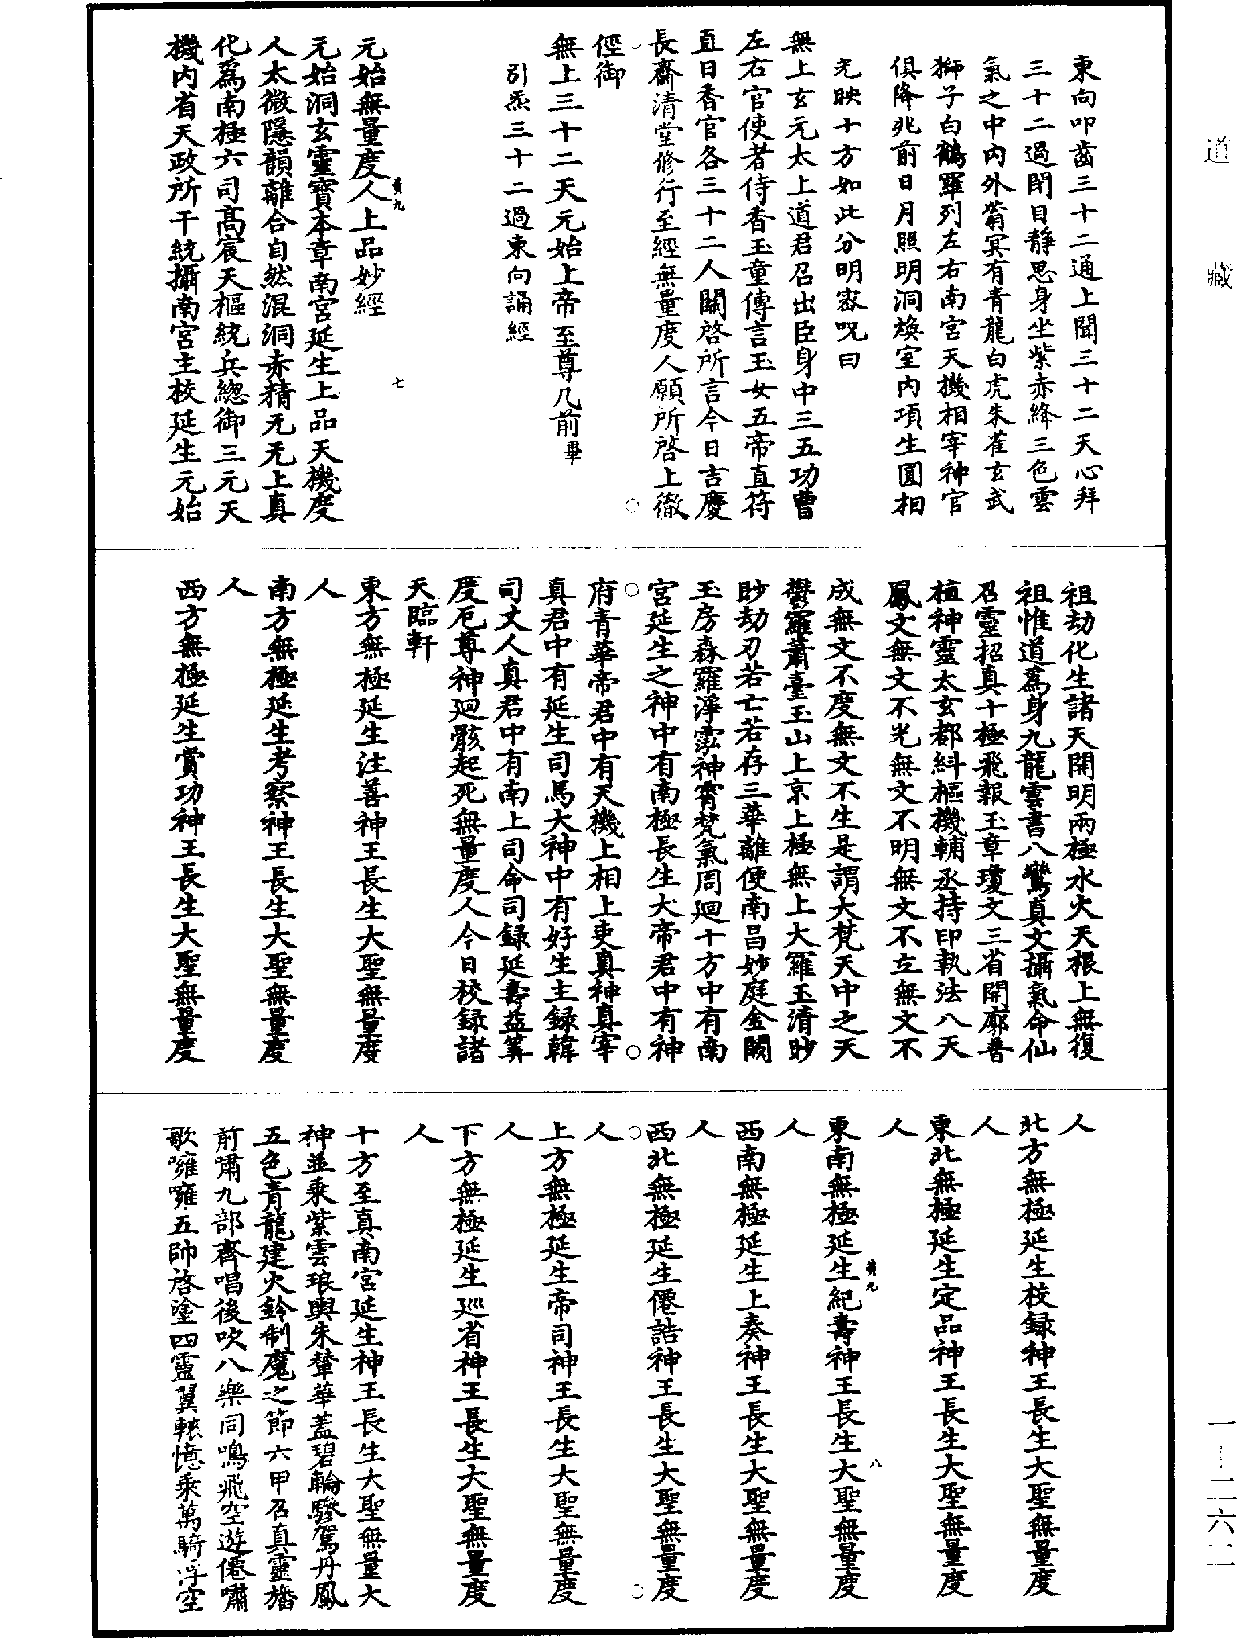 道藏
東向叩齒三十二通上聞三十二天心拜
三十二過閉目靜思身坐紫赤絳三色雲
氣之中內外翁冥有青龍白虎朱雀玄武
獅子白鶴羅列左右南宮天機相宰神官
俱降兆前日月照明洞煥室內項生圓相
光映十方如此分明密呪曰
無上玄元太上道君召出臣身中三五功曹
左右官使者侍香玉童傳言玉女五帝直符
直日香官各三十二人關啓所言今日吉慶
長齋清堂修行至經無量度人願所啓上徹
徑御
無上三十二天元始上帝至尊几前畢
引炁三十二過東向誦經
黃九
七
元始無量度人上品妙經
元始洞玄靈寶本章南宮延生上品天機度
人太微隱韻離合自然混洞赤精无无上真
化爲南極六司高宸天樞統兵總御三元天
機內省天政所干統攝南宮主校延生元始
祖劫化生諸天開明兩極水火天根上無復
祖惟道爲身九龍雲書八鸞真文攝氣命仙
召靈招真十極飛報玉章瓊文三省開廓普
植神靈太玄都糾樞機輔丞持印執法八天
鳳文無文不光無文不明無文不立無文不
成無文不度無文不生是謂大梵天中之天
鬱羅蕭臺玉山上京上極無上大羅玉清眇
眇劫刃若亡若存三華離便南昌妙庭金闕
玉房森羅淨泓神霄梵氣周廻十方中有南
宮延生之神中有南極長生大帝君中有神
府青華帝君中有天機上相上吏真神真宰
真君中有延生司馬大神中有好生主録韓
司丈人真君中有南上司命司録延壽益筭
度厄尊神廻骸起死無量度人今日校録諸
天臨軒
東方無極延生注善神王長生大聖無量度
人
南方無極延生考察神王長生大聖無量度
人
西方無極延生賞功神王長生大聖無量度
人
北方無極延生校録神王長生大聖無量度
人
東北無極延生定品神王長生大聖無量度
人
黃九
八
東南無極延生紀壽神王長生大聖無量度
人
西南無極延生上奏神王長生大聖無量度
人
西北無極延生僊誥神王長生大聖無量度
人
上方無極延生帝司神王長生大聖無量度
人
下方無極延生巡省神王長生大聖無量度
人
十方至真南宮延生神王長生大聖無量大
神並乘紫雲琅輿朱輦華蓋碧輪驂駕丹鳳
五色青龍建火鈴制魔之節六甲召真靈旛
前嘯九部齊唱後吹八樂同鳴飛空遊僊嘯
歌噰噰五帥啓塗四靈翼轅億乘萬騎浮空
一—二六二